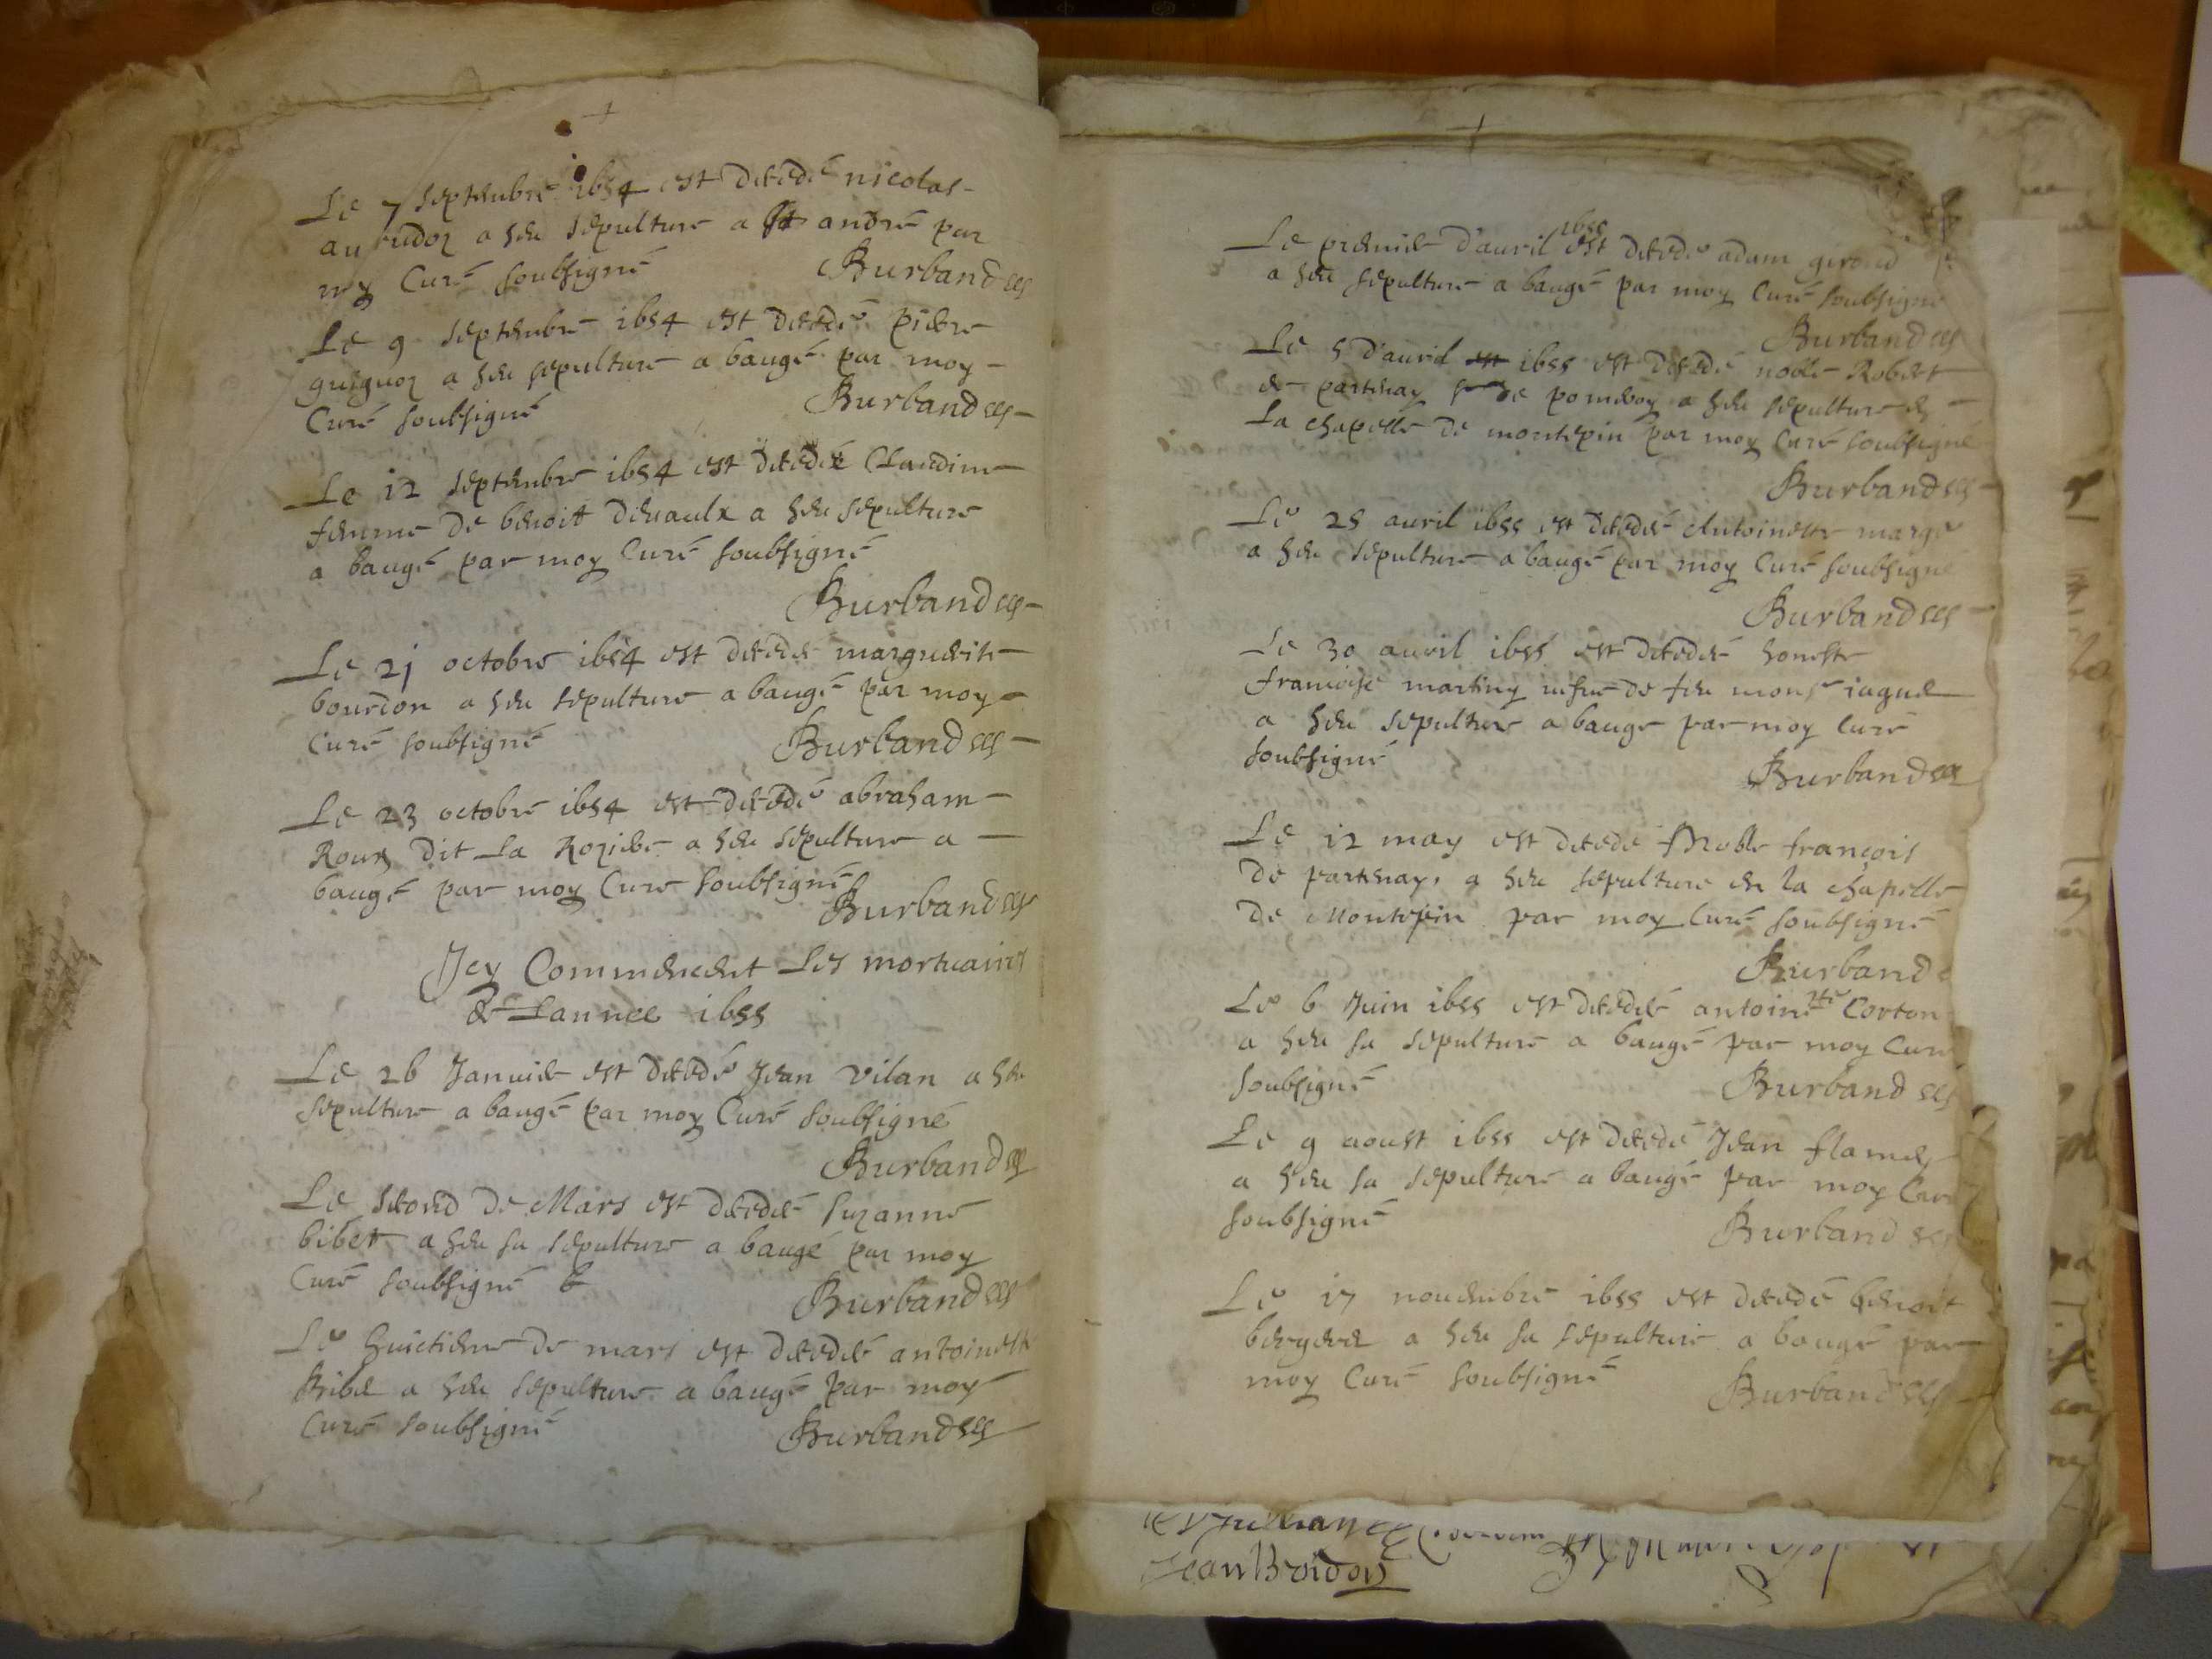 Le 7 septembre 1654 est decedé nicolas
a heu sepulture a st andré par
moy Curé soubsigné Burband
Le 9 septembre 1654 est decedé piere
guiguoz a heu sepulture a baugé par moy
Curé soubsigné Burband
Le 12 septembre 1654 est decedée Claudine
femme de benoit a heu sepulture
a baugé par moy Curé soubsigné
Burband
Le 21 octobre 1654 est decedée marguerite
bourdon a heu sepulture a baugé par moy
Curé soubsigné Burband
Le 23 octobre 1654 est decedé abraham
Roux dit La Roziere a heu sepulture a
baugé par moy Curé soubsigné
Burband
Icy Commencent Les mortuaires
de Lannee 1655
Le 26 Janvier est decedé Jean vilan a heu
sepulture a baugé par moy Curé soubsigné
Burband
Le second de Mars est decedée suzanne
bibet a heu sa sepulture a baugé par moy
Curé soubsigné
Burband
Le huictieme de mars est decedée antoinette
a heu sepulture a baugé par moy
Curé soubsigné Burband
Le premier d'auril 1655 est decedé adam giroud
a heu sepulture a baugé par moy Curé soubsigné
Burband
Le 5 d'auril est 1655 est decedé noble Robert
de partenay a heu sepulture en
La chapelle de montepin par moy Curé soubsigné
Burband
Le 25 auril 1655 est decedée Antoinette
a heu sepulture a baugé par moy Curé soubsigné
Burband
Le 30 auril 1655 est decedée honeste
francoise martiny de feu monsr
a heu sepulture a baugé par moy Curé
soubsigné
Burband
Le 12 may est decedé Noble françois
de partenay, a heu sepulture en la chapelle
de Montepin par moy Curé soubsigné
Burband
Le 6 Juin 1655 est decedée antoinette Corton
a heu sa sepulture a baugé par moy Curé
soubsigné Burband
Le 9 aoust 1655 est decedé Jean
a heu sa sepulture a baugé par moy Curé
soubsigné Burband
Le 17 nouembre 1655 est decedé benoit
a heu sa sepulture a baugé par
moy Curé soubsigné Burband
Jean Bridon